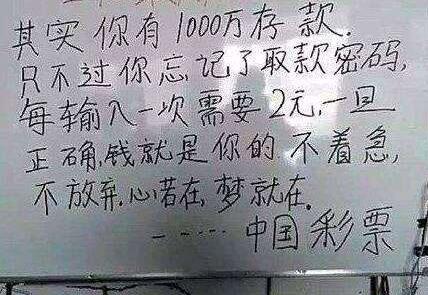 其实你有1000万存款.
只不过你忘记了取款密码,
每输入一次需要2元,一旦
正确,钱就是你的不着急,
不放弃.心若在,梦就在.
-----中国彩票